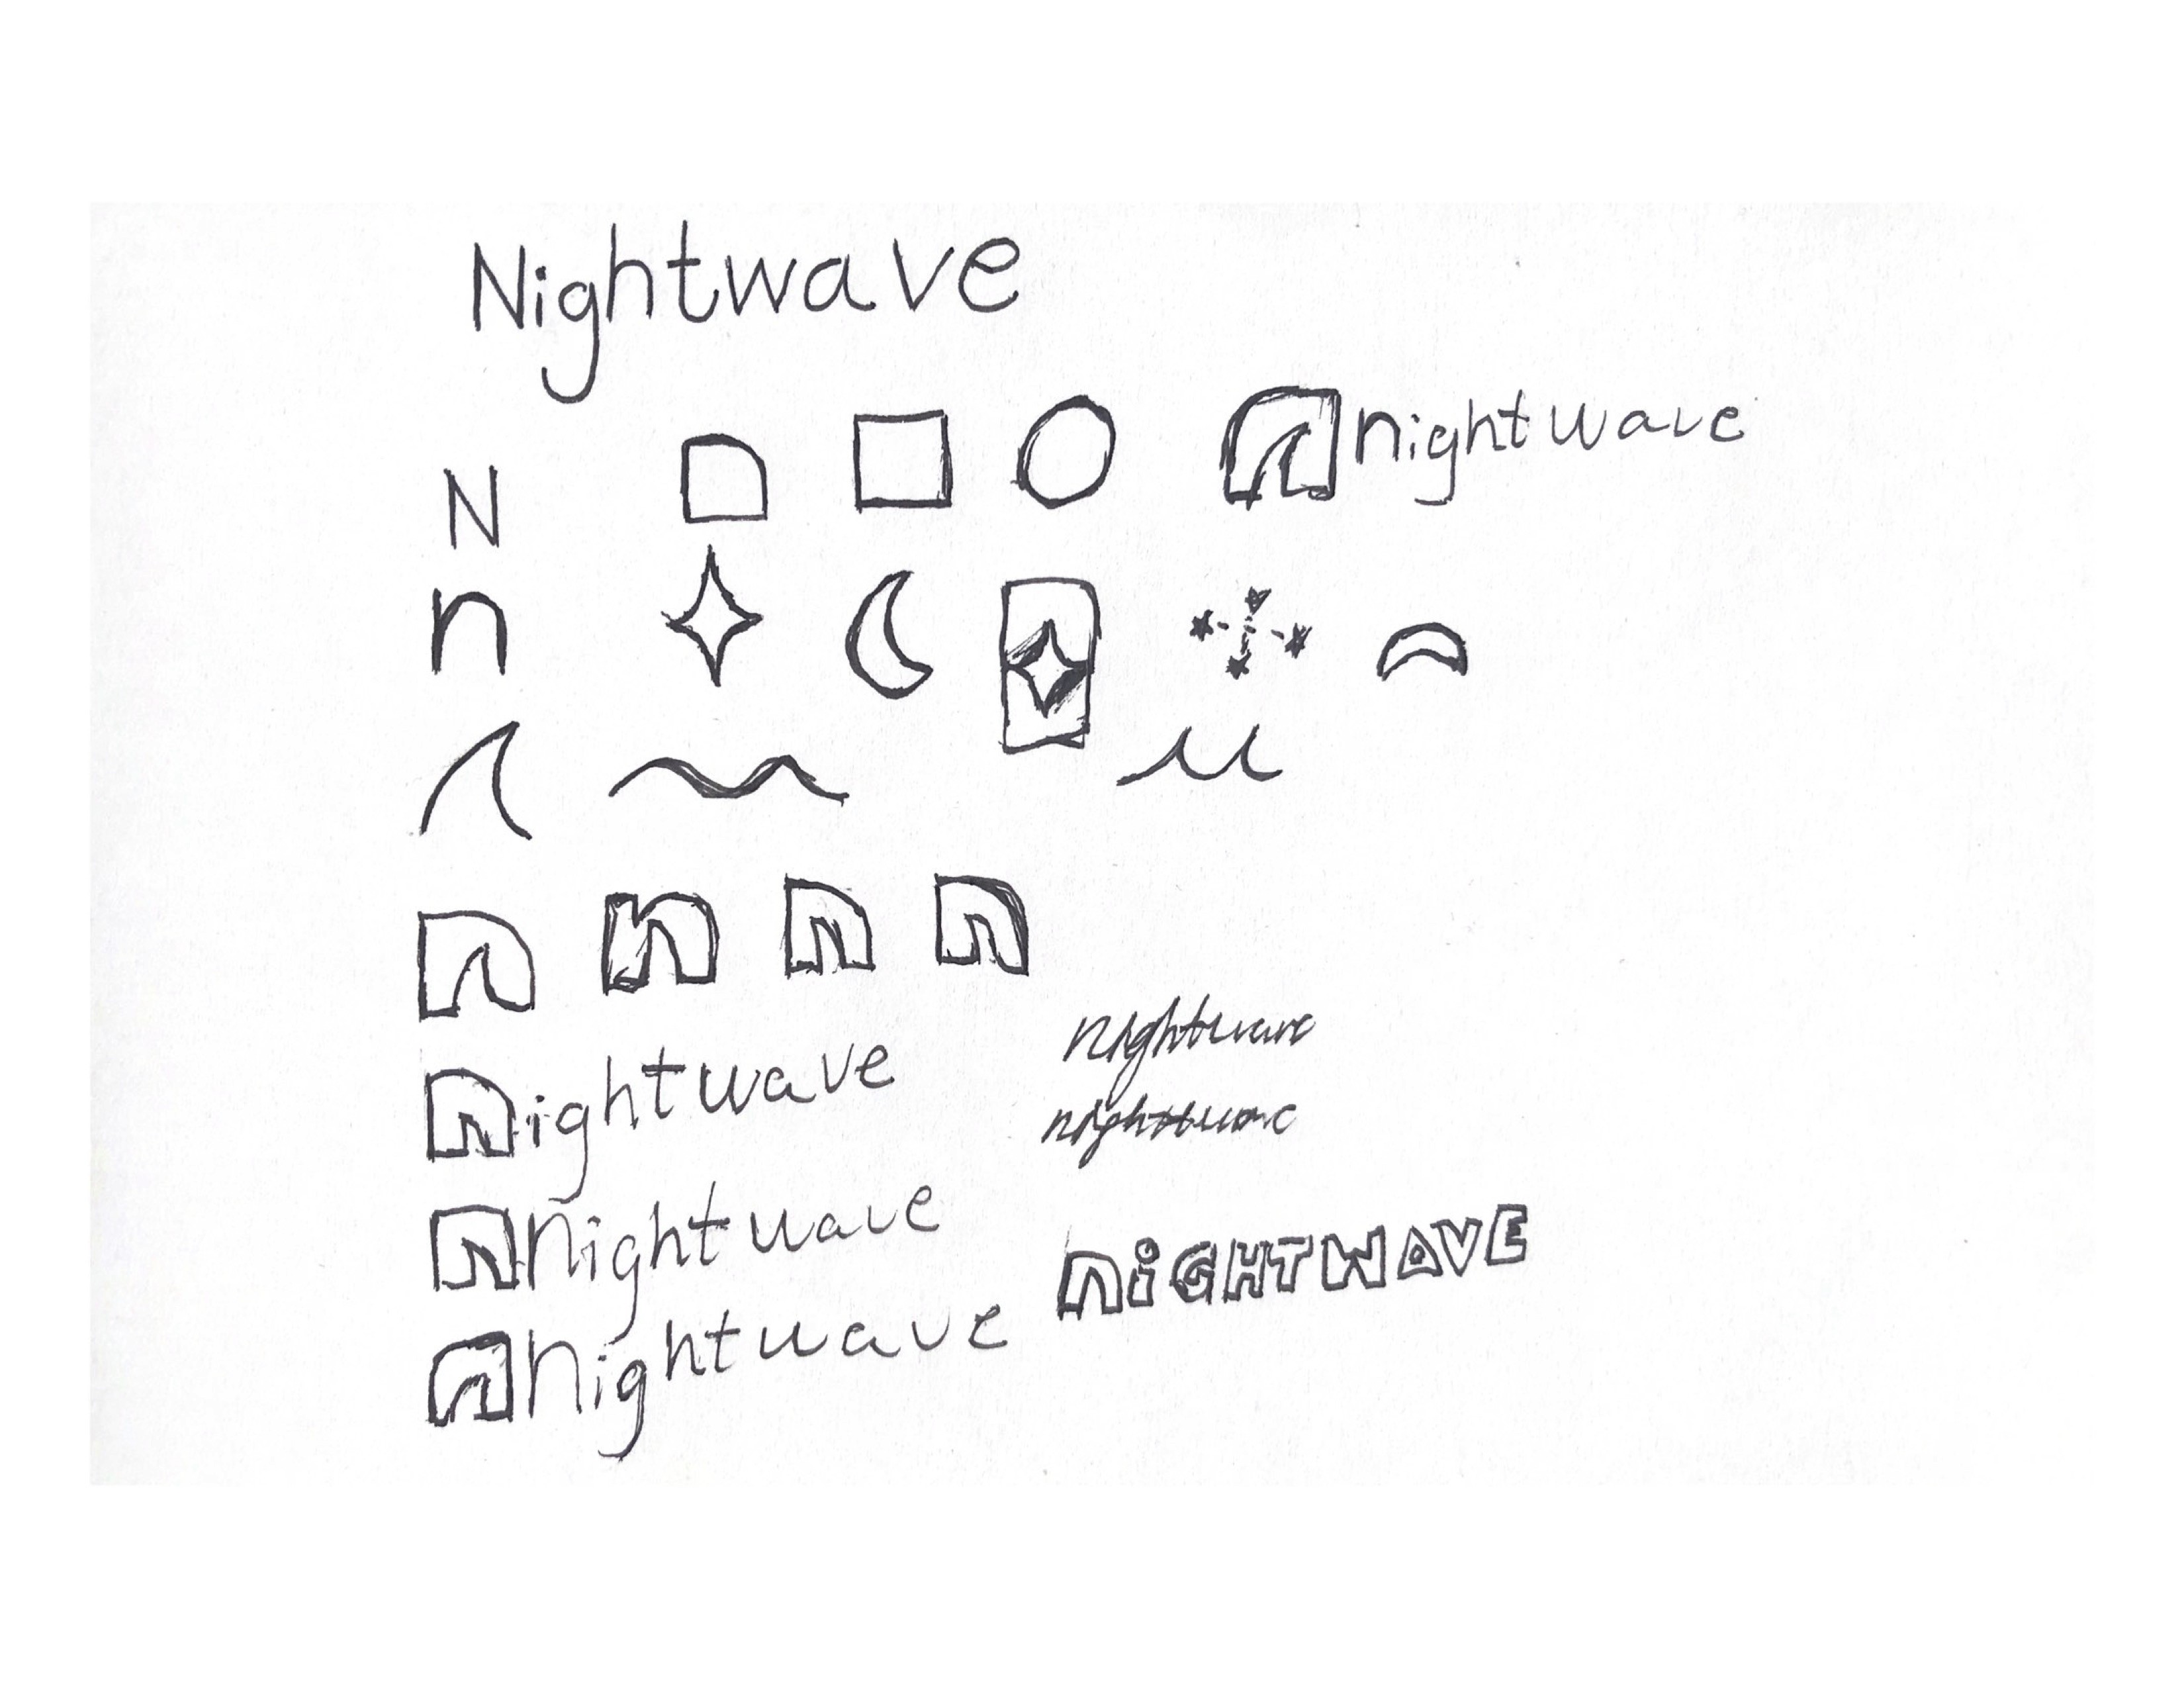 Nightwave
nightwave
N
n
n n n n
nightwave
nightwave
nightwave
nightwave
nightwave
NiGHTWAVE